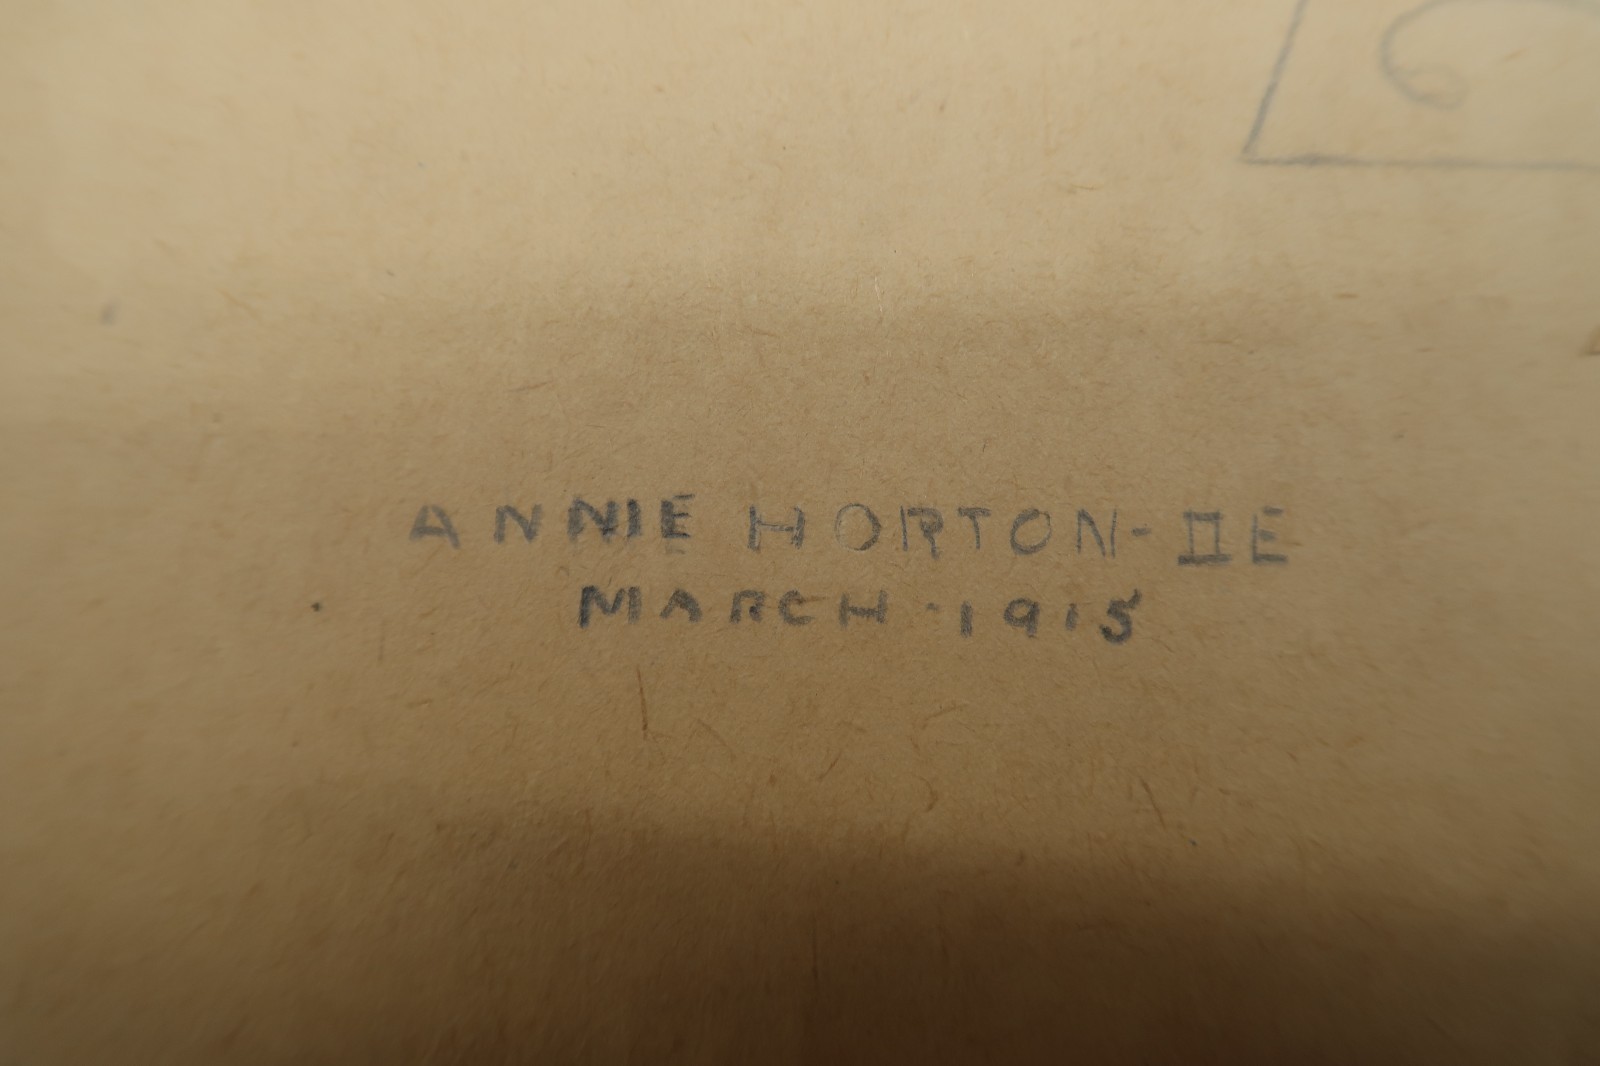 ANNIE HORTON-IIE
MARCH-1915